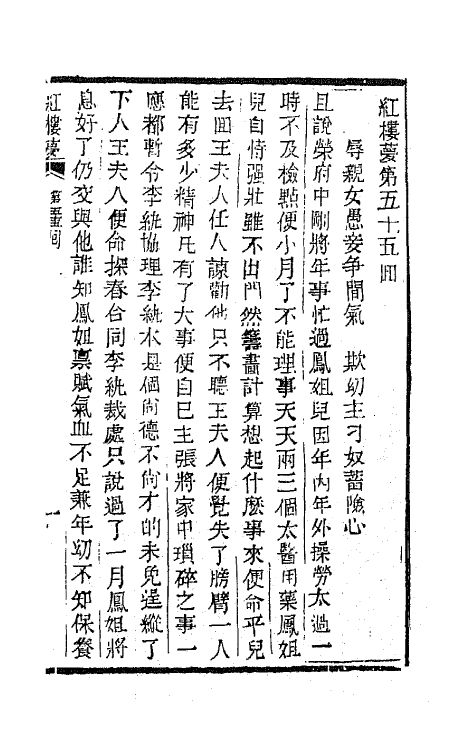 紅樓夢第五十五回
辱親女愚妾爭閒氣　欺幼主刁奴蓄險心
且說榮府中剛將年事忙過鳳姐兒因年內年外操勞太過一
時不及檢點便小月了不能理事天天兩三個太醫用藥鳳姐
兒自恃强壯雖不出門然籌畫計算想起什麽事來便命平兒
去回王夫人任人諫勸他只不聽王夫人便覺失了膀臂一人
能有多少精神凡有了大事便自己主張將家中瑣碎之事一
應都暫令李紈協理李紈本是個尚德不尚才的未免逞縱了
下人王夫人便命探春合同李紈裁處只說過了一月鳳姐將
息好了仍交與他誰知鳳姐禀賦氣血不足兼年幼不知保養
紅樓夢　第五十五回　一